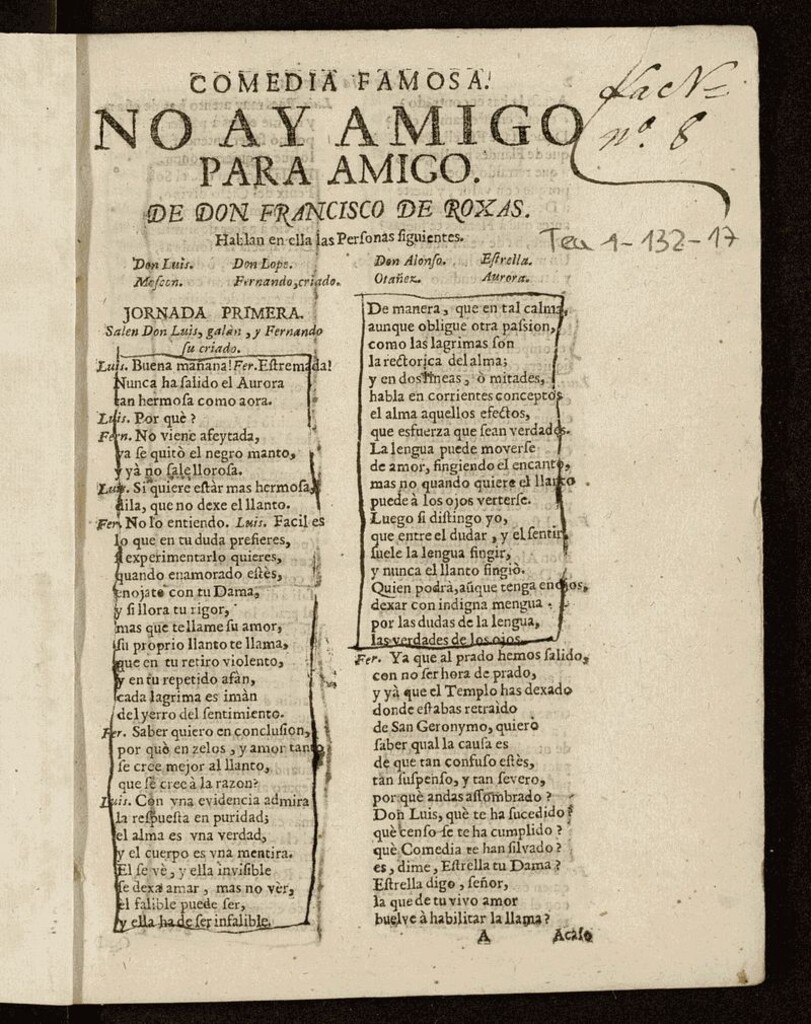 COMEDIA FAMOSA.
NO AY AMIGO
PARA AMIGO.
DE DON FRANCISCO DE ROXAS.
nº. 8
Tea 1-132-17
Hablan en ella las Perſonas ſiguientes.
Don Luis. Don Lope. Don Alonſo. Eſtrella.
Moſcon. Fernando, criado. Otañez. Aurora.
JORNADA PRIMERA.
Salen Don Luis, galàn, y Fernando
ſu criado.
Luis. Buena mañana! Fer. Eſtremada!
Nunca ha ſalido el Aurora
tan hermoſa como aora.
Luis. Por què?
Fern. No viene afeytada,
ya ſe quitò el negro manto,
y yà no ſale lloroſa.
Luis. Si quiere eſtàr mas hermoſa,
dila, que no dexe el llanto.
Fer. No lo entiendo. Luis. Facil es
lo que en tu duda prefieres,
ſi experimentarlo quieres,
quando enamorado eſtès,
enojate con tu Dama,
y ſi llora tu rigor,
mas que te llame ſu amor,
ſu proprio llanto te llama,
que en tu retiro violento,
y en tu repetido afàn,
cada lagrima es imàn
del yerro del ſentimiento.
Fer. Saber quiero en concluſion,
por què en zelos, y amor tanto
ſe cree mejor al llanto,
que ſe cree à la razon?
Luis. Con vna evidencia admira
la reſpueſta en puridad;
el alma es vna verdad,
y el cuerpo es vna mentira.
El ſe vè, y ella inviſible
ſe dexa amar, mas no vèr,
èl falible puede ſer,
y ella ha de ſer infalible.
De manera, que en tal calma,
aunque obligue otra paſsion,
como las lagrimas ſon
la rectorica del alma;
y en dos lineas, ò mitades,
habla en corrientes conceptos
el alma aquellos efectos,
que esfuerza que ſean verdades.
La lengua puede moverſe
de amor, fingiendo el encanto,
mas no quando quiere el llanto
puede à los ojos verterſe.
Luego ſi diſtingo yo,
que entre el dudar, y el ſentir,
ſuele la lengua fingir,
y nunca el llanto fingiò.
Quien podrà, aũque tenga enojos,
dexar con indigna mengua
por las dudas de la lengua,
las verdades de los ojos.
Fer. Ya que al prado hemos ſalido,
con no ſer hora de prado,
y yà que el Templo has dexado
donde eſtabas retraìdo
de San Geronymo, quiero
ſaber qual la cauſa es
de que tan confuſo eſtès,
tàn ſuſpenſo, y tan ſevero,
por què andas aſſombrado?
Don Luis, què te ha ſucedido?
què cenſo ſe te ha cumplido?
què Comedia te han ſilvado?
es, dime, Eſtrella tu Dama?
Eſtrella digo, ſeñor,
la que de tu vivo amor
buelve à habilitar la llama?
A Acaſo